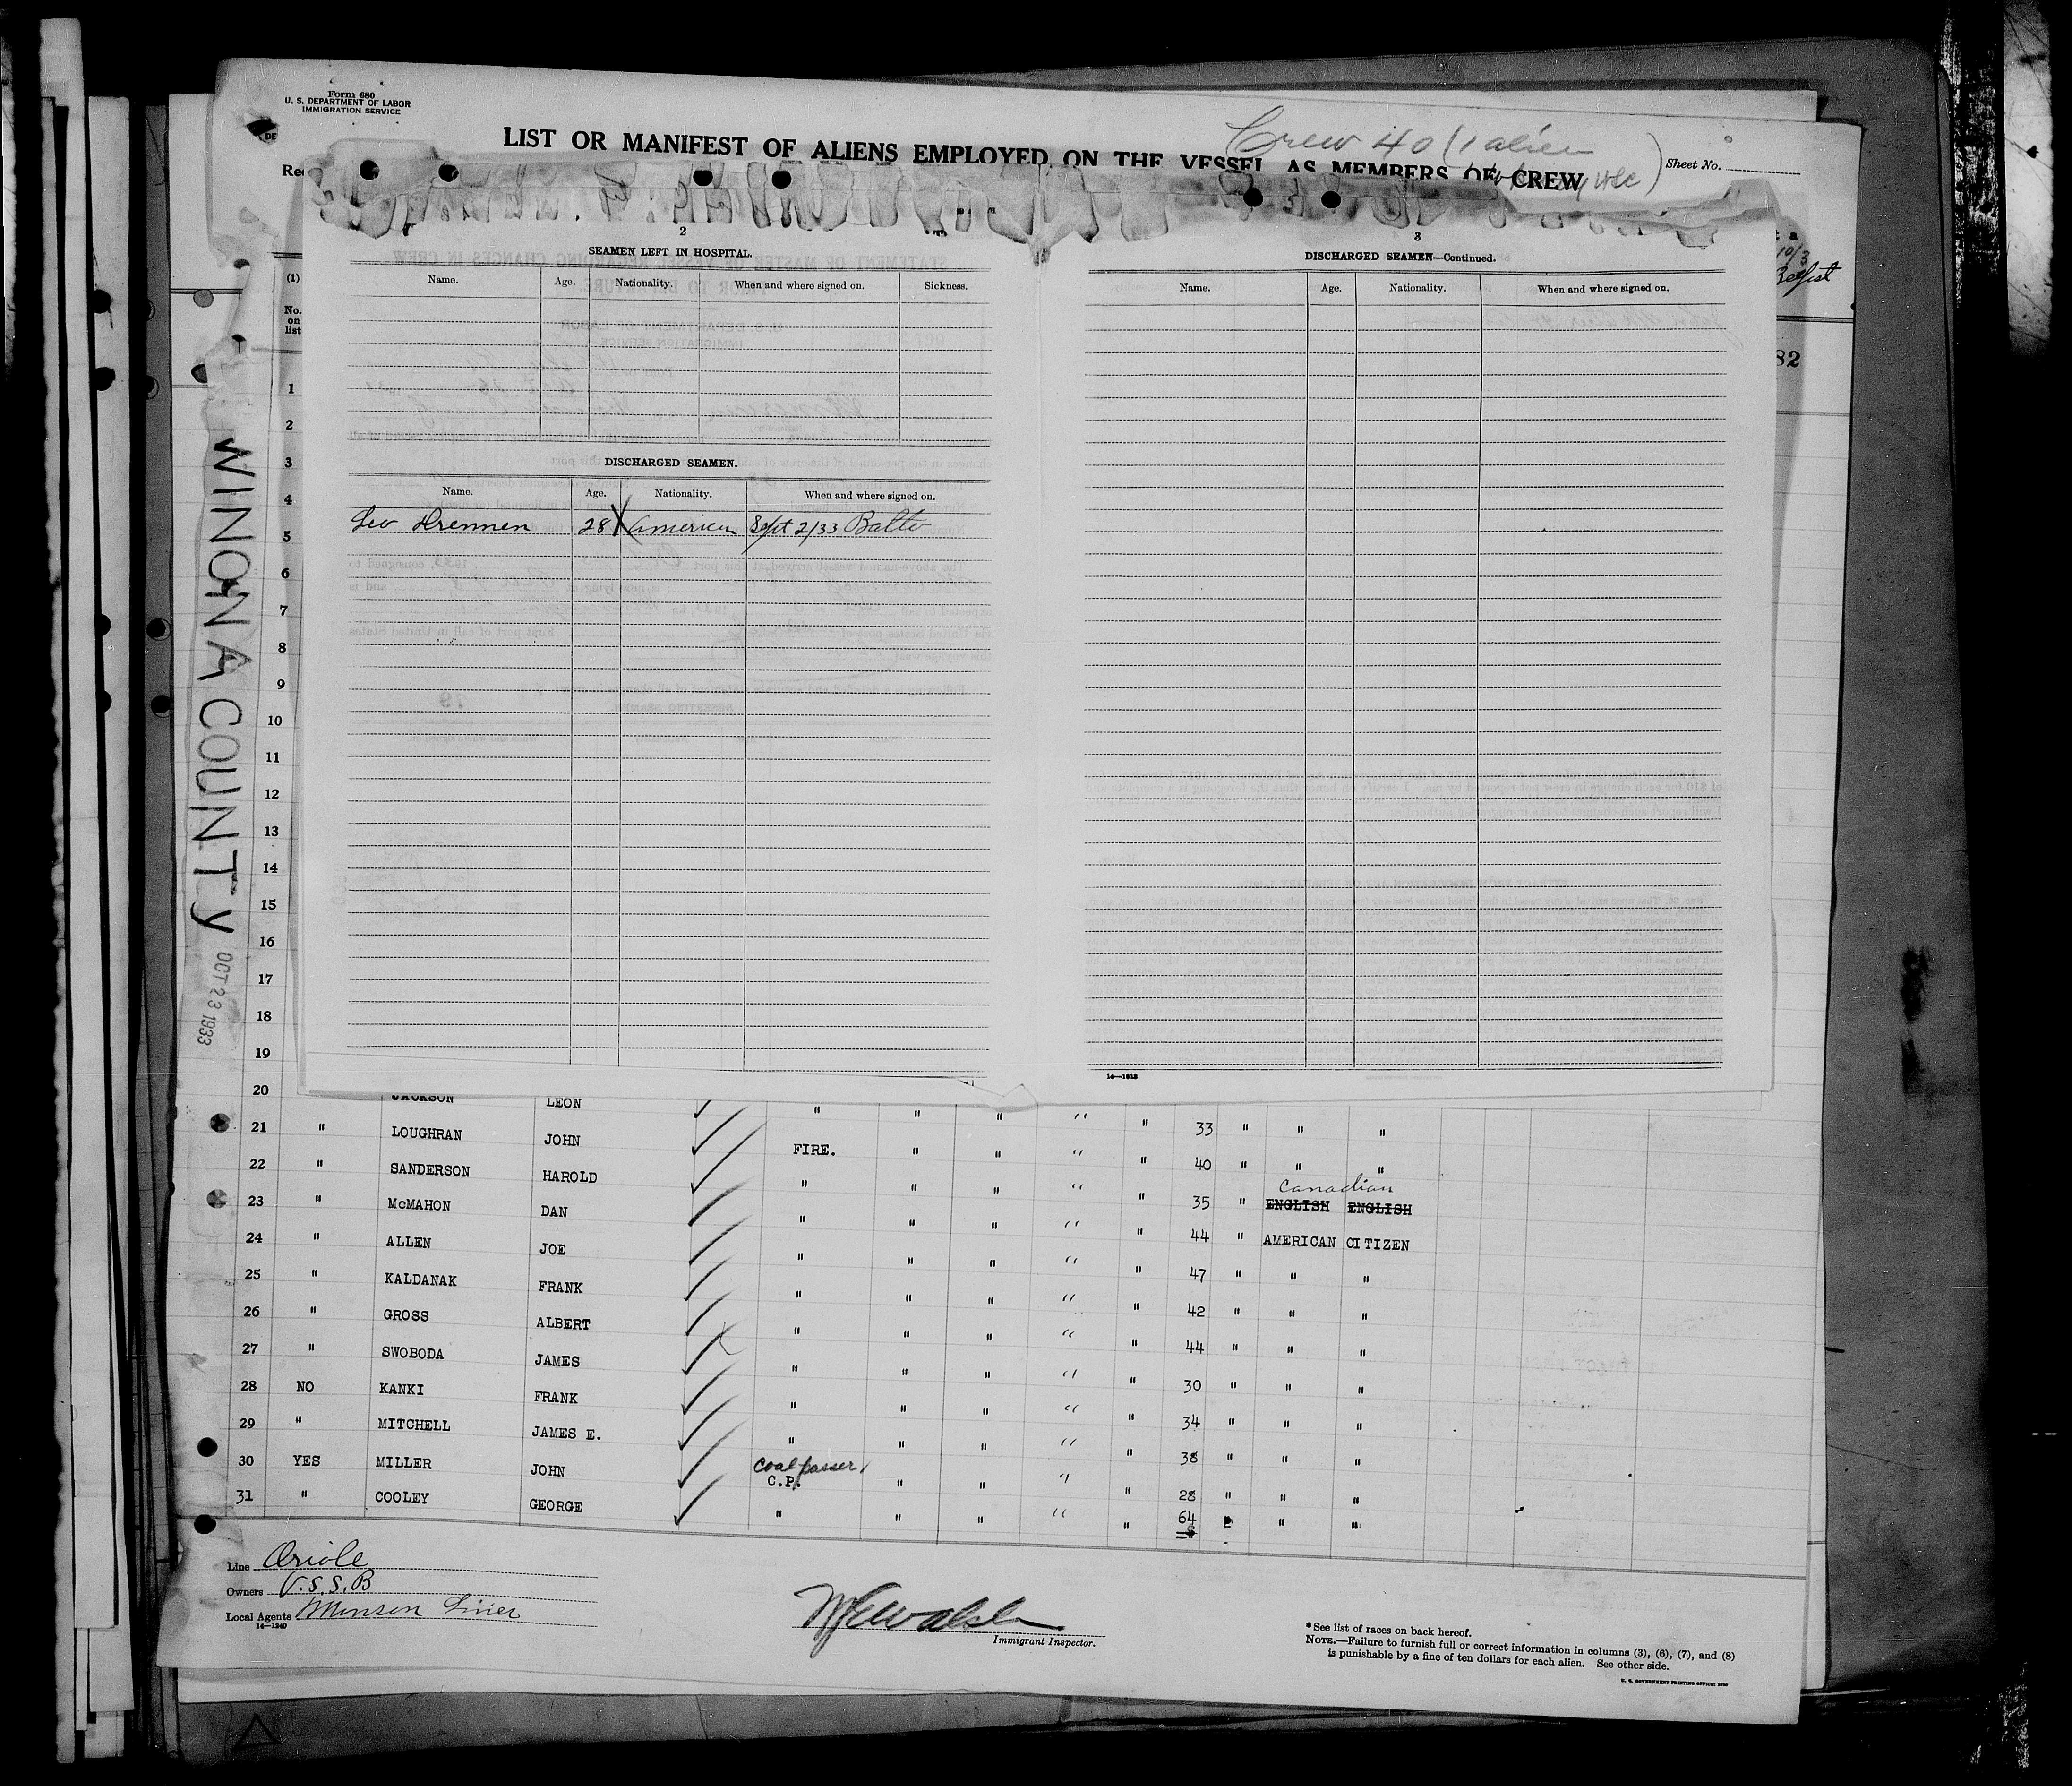 Form 680
U. S. DEPARTMENT OF LABOR
IMMIGRATION SERVICE
LIST OR MANIFEST OF ALIENS EMPLOYED ON THE VESSEL AS MEMBERS OF CREW
Crew 40 (1 alien
Sheet No.
10/3
Belfast
82
2
SEAMEN LEFT IN HOSPITAL.
Name. Age. Nationality. When and where signed on. Sickness.
DISCHARGED SEAMEN.
Name. Age. Nationality. When and where signed on.
Leo Drennen 28 X American Sept 2/33 Balto
3
DISCHARGED SEAMEN—Continued.
Name. Age. Nationality. When and where signed on.
14—1613
WINONA COUNTY OCT 23 1933
(1)
No. on list
1
2
3
4
5
6
7
8
9
10
11
12
13
14
15
16
17
18
19
20 JACKSON LEON " " " " "
21 " LOUGHRAN JOHN FIRE. " " " " 33 " " "
22 " SANDERSON HAROLD " " " " " 40 " " "
Canadian
23 " McMAHON DAN " " " " " 35 " ENGLISH ENGLISH
24 " ALLEN JOE " " " " " 44 " AMERICAN CITIZEN
25 " KALDANAK FRANK " " " " " 47 " " "
26 " GROSS ALBERT " " " " " 42 " " "
27 " SWOBODA JAMES " " " " " 44 " " "
28 NO KANKI FRANK " " " " " 30 " " "
29 " MITCHELL JAMES E. " " " " " 34 " " "
30 YES MILLER JOHN coal passer C.P. " " " " 38 " " "
31 " COOLEY GEORGE " " " " " 28 " " "
64 " "
Line Oriole
Owners U.S.S.B
Local Agents Munson Liner
14—1240
W E Walsh
Immigrant Inspector.
* See list of races on back hereof.
NOTE.—Failure to furnish full or correct information in columns (3), (6), (7), and (8)
is punishable by a fine of ten dollars for each alien. See other side.
U. S. GOVERNMENT PRINTING OFFICE: 1930